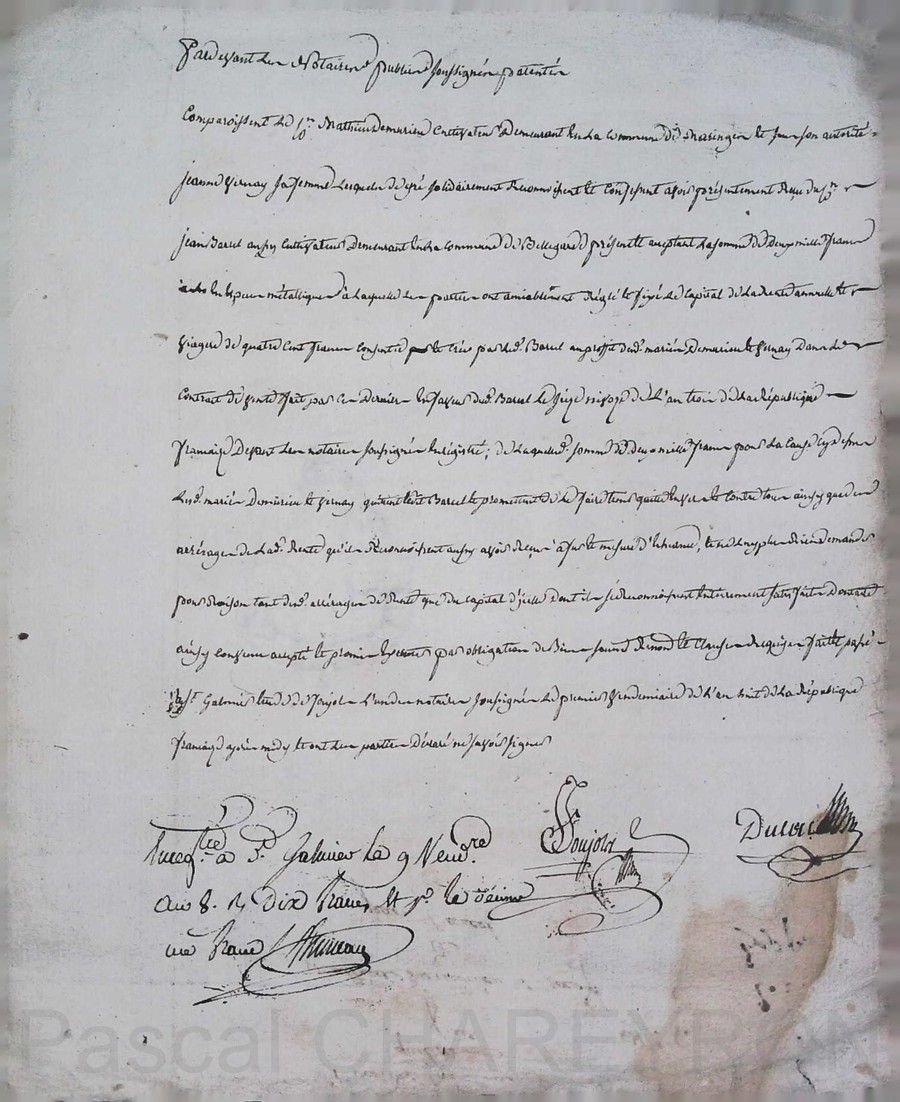 Pardevant les Notaires publics soussignés patentés
Comparoissent le Sr. Mathieu Demurieu Cultivateur Demeurant en la Commune de Maringes et sous son autorité
jeanne Vernay sa femme Lesquels de gré solidairement Reconnoissent et Confessent avoir présentement Reçu du Sr.
jean Barcel aussy Cultivateur Demeurant en la Commune de Bellegarde présent et acceptant La somme de Deux mille francs
en Espèces métalliques à Laquelle Les parties ont amiablement Réglé et fixé Le Capital de La Rente annuelle et
Viagere de quatre Cent francs Consentie et Créé par led. Barcel au profit desd. mariés Demurieu et Vernay Dans le
Contrat de Vente fait par Ces Derniers En faveur dud. Barcel le seize nivoze de L'an trois de La République
française Devant Les notaires soussignés Enregistré; de Laquelle d. somme de deux mille francs pour La Cause cy dessus
Lesd. mariés Demurieu et Vernay quittent led. Barcel et promettent de Le faire tenir quitte Envers et Contre tous ainsy que des
arrérages de Lad. Rente qu'ils Reconnoissent aussy avoir Reçus à fur et mesure d'Echeance, et ne Luy plus Rien Demander
pour Raison tant desd. arrérages de Rente que du Capital d'jcelle Dont ils se Reconnoissent Entierement satisfaits Dont acte
ainsy Convenu accepté et promis Executer par obligation de Biens soumis Renond. et Clauses Requises fait et passé
à St. Galmier Etude de Soujol L'un des notaires soussignés Le premier Vendemiaire de L'an huit de La République
française après midy et ont Les parties Déclaré ne savoir signer
Soujol
Ducros
Enregtré. à St. Galmier Le 9 Vendre.
an 8. R. Dix francs et pr. le dixieme
un franc
Pascal CHAREYRON